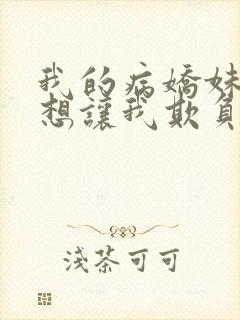 我的病嬌妹
想讓我欺負
淺茶可可